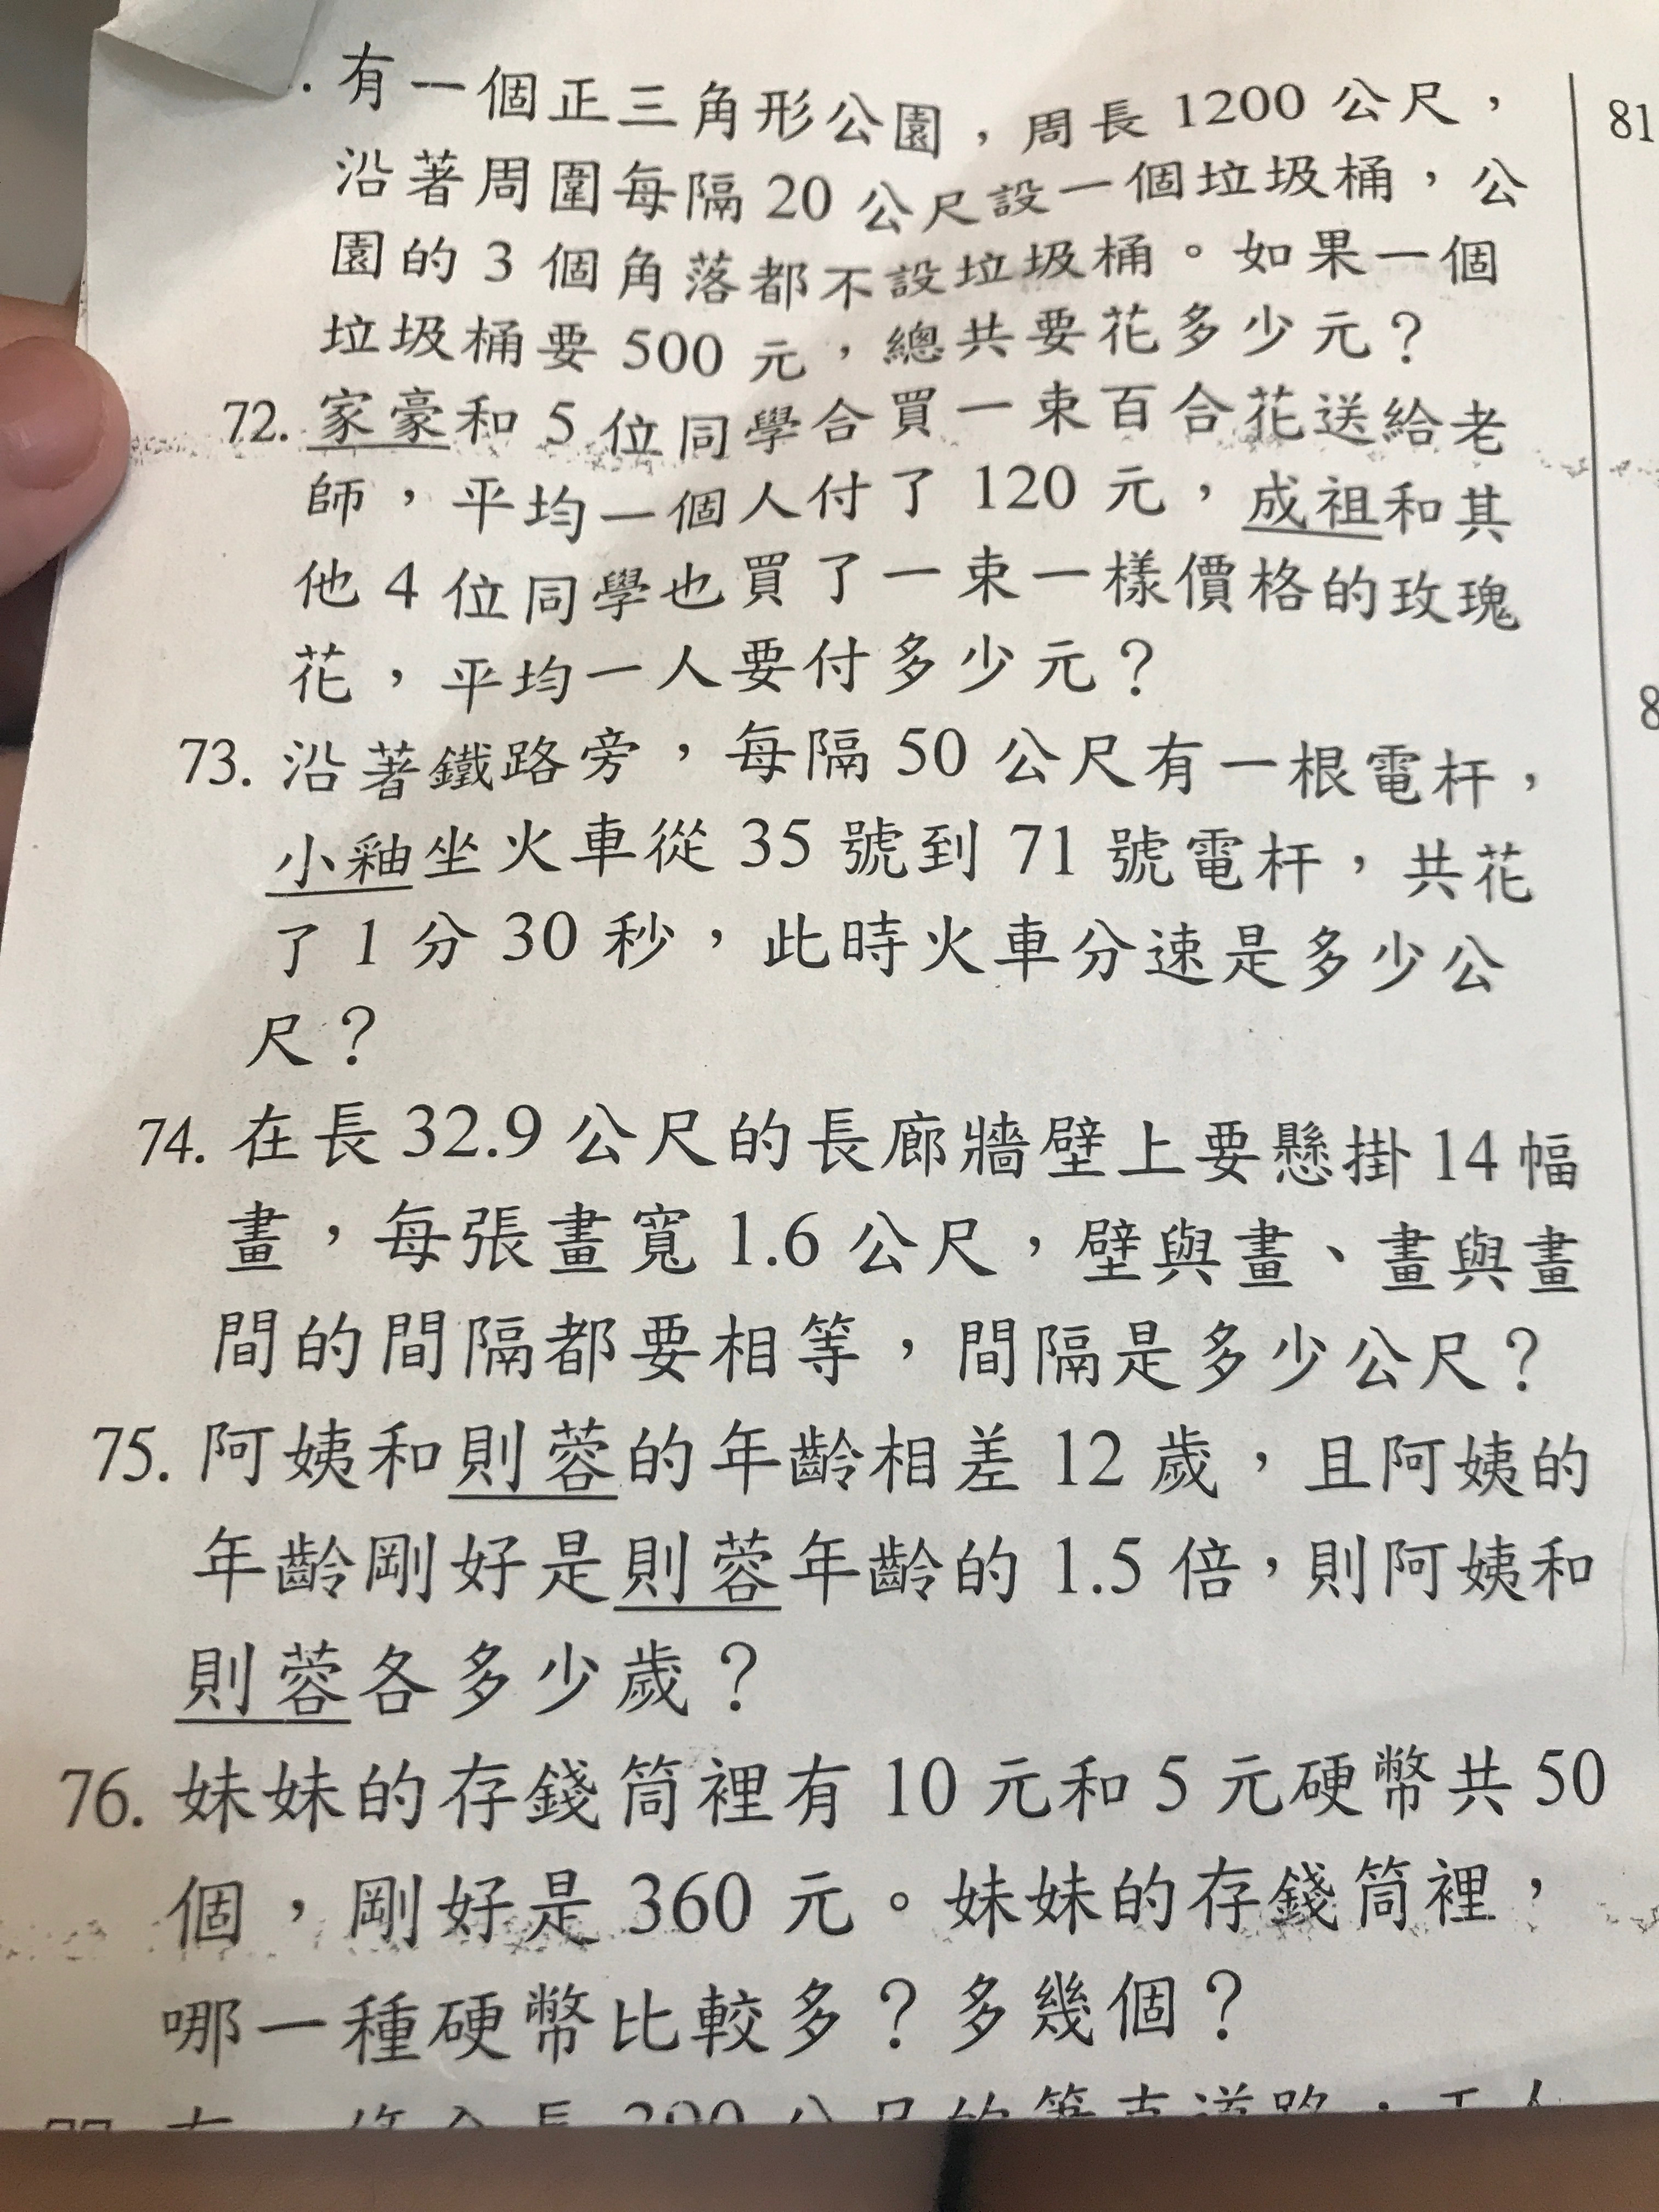 . 有一個正三角形公園，周長 1200 公尺，
沿著周圍每隔 20 公尺設一個垃圾桶，公
園的 3 個角落都不設垃圾桶。如果一個
垃圾桶要 500 元，總共要花多少元？
72. 家豪和 5 位同學合買一束百合花送給老
師，平均一個人付了 120 元，成祖和其
他 4 位同學也買了一束一樣價格的玫瑰
花，平均一人要付多少元？
73. 沿著鐵路旁，每隔 50 公尺有一根電杆，
小釉坐火車從 35 號到 71 號電杆，共花
了 1 分 30 秒，此時火車分速是多少公
尺？
74. 在長 32.9 公尺的長廊牆壁上要懸掛 14 幅
畫，每張畫寬 1.6 公尺，壁與畫、畫與畫
間的間隔都要相等，間隔是多少公尺？
75. 阿姨和則蓉的年齡相差 12 歲，且阿姨的
年齡剛好是則蓉年齡的 1.5 倍，則阿姨和
則蓉各多少歲？
76. 妹妹的存錢筒裡有 10 元和 5 元硬幣共 50
個，剛好是 360 元。妹妹的存錢筒裡，
哪一種硬幣比較多？多幾個？
81